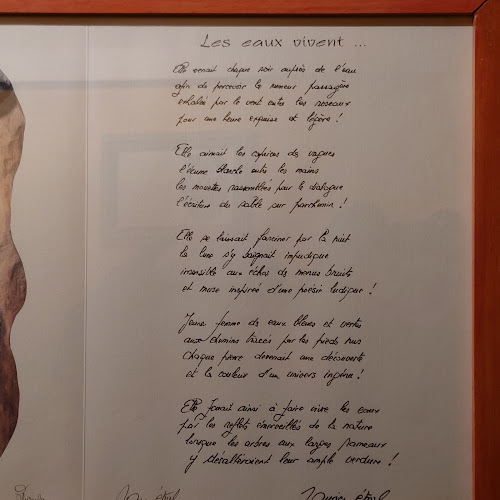 Les eaux vivent ...
Elle venait chaque soir auprès de l'eau
afin de percevoir la rumeur passagère
exhalée par le vent entre les roseaux
pour une heure exquise et légère !
Elle aimait les caprices des vagues
l'écume blanche entre les mains
les mouettes rassemblées pour le dialogue
l'écriture du sable sur parchemin !
Elle se laissait fasciner par la nuit
la lune s'y baignait impudique
insensible aux échos de menus bruits
et muse inspirée d'une poésie ludique !
Jeune femme des eaux bleues et vertes
aux chemins tracés par les pieds nus
chaque pierre devenait une découverte
et la couleur d'un univers ingénu !
Elle jouait ainsi à faire vivre les eaux
par les reflets émerveillés de la nature
lorsque les arbres aux larges rameaux
y désaltéraient leur ample verdure !